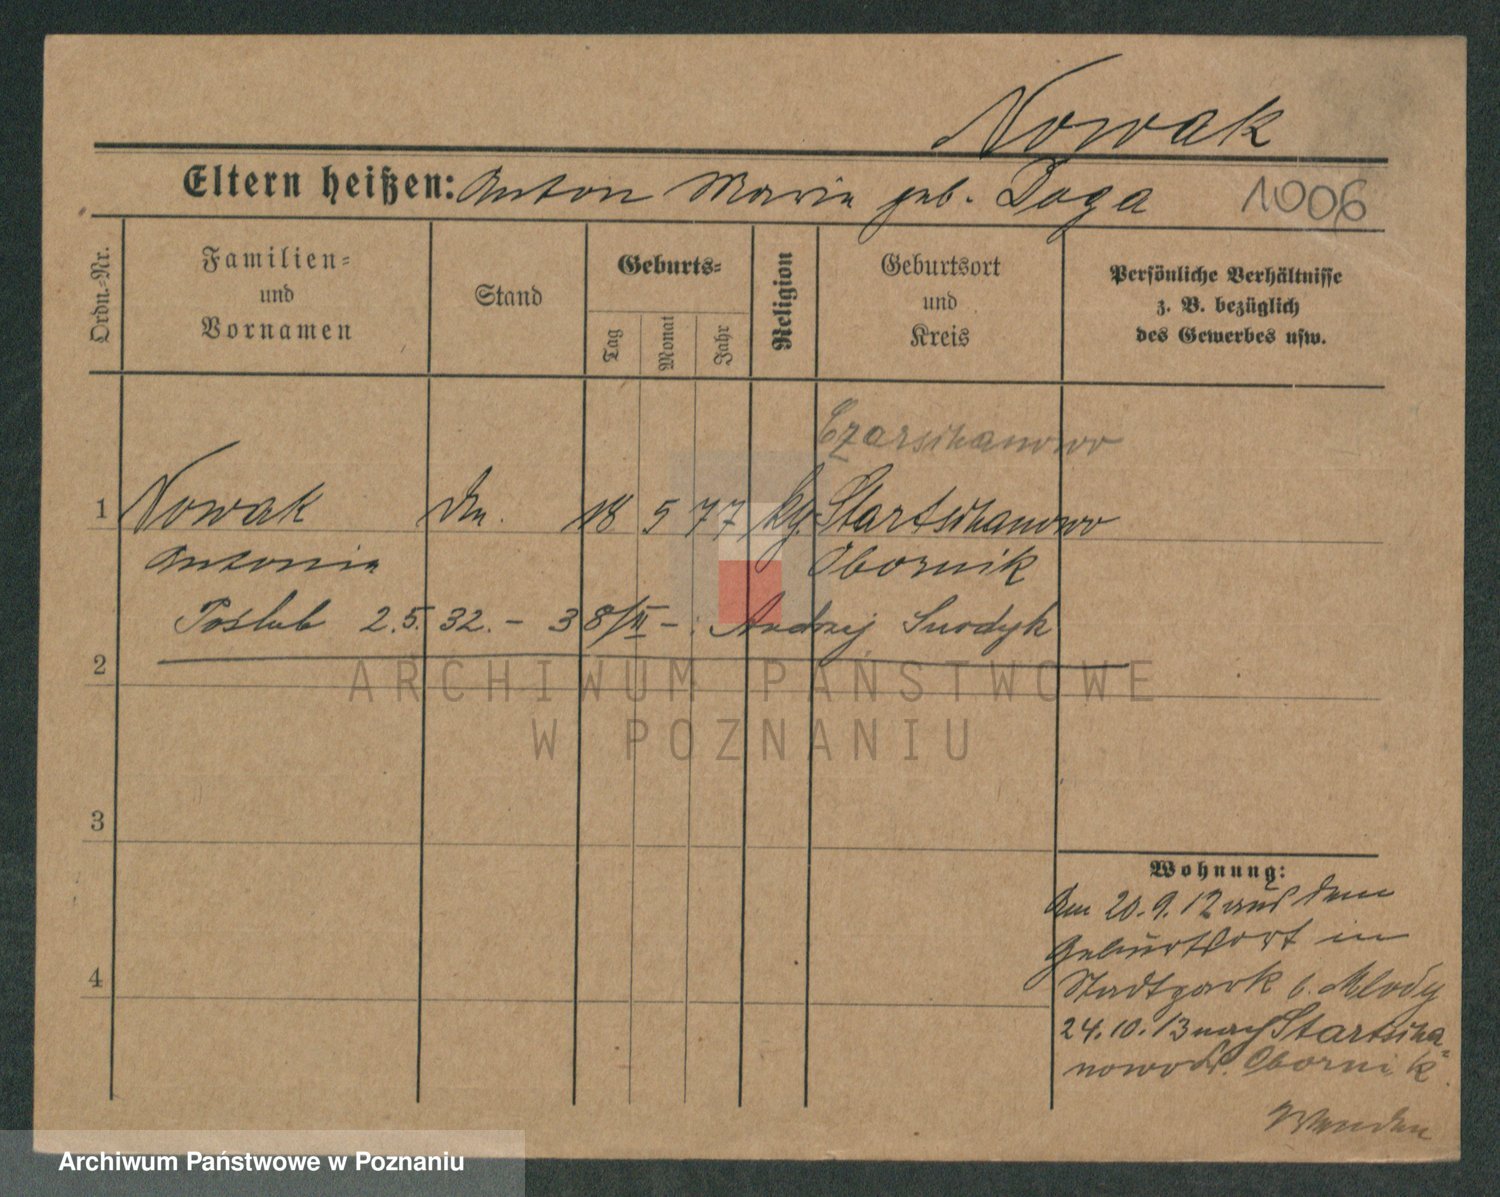 Nowak
Eltern heißen: Anton Marie geb. Doga
1006
Ordn.-Nr.
Familien-
und
Vornamen
Stand
Geburts-
Tag
Monat
Jahr
Religion
Geburtsort
und
Kreis
Persönliche Verhältnisse
z. B. bezüglich
des Gewerbes usw.
Czarsihanowo
1 Nowak 18 5 77 kg. Startsihanowo
Antonia Obornik
Poślub 2.5.32. - 38/VI - : Andrzej
2
3
4
Wohnung:
Am 20.9.12 aus dem
Geburtsort in
Stadtpark b. Mlody
24.10.13 nach Startsiha=
nowo Kr. Obornik.
ARCHIWUM PAŃSTWOWE
W POZNANIU
Archiwum Państwowe w Poznaniu